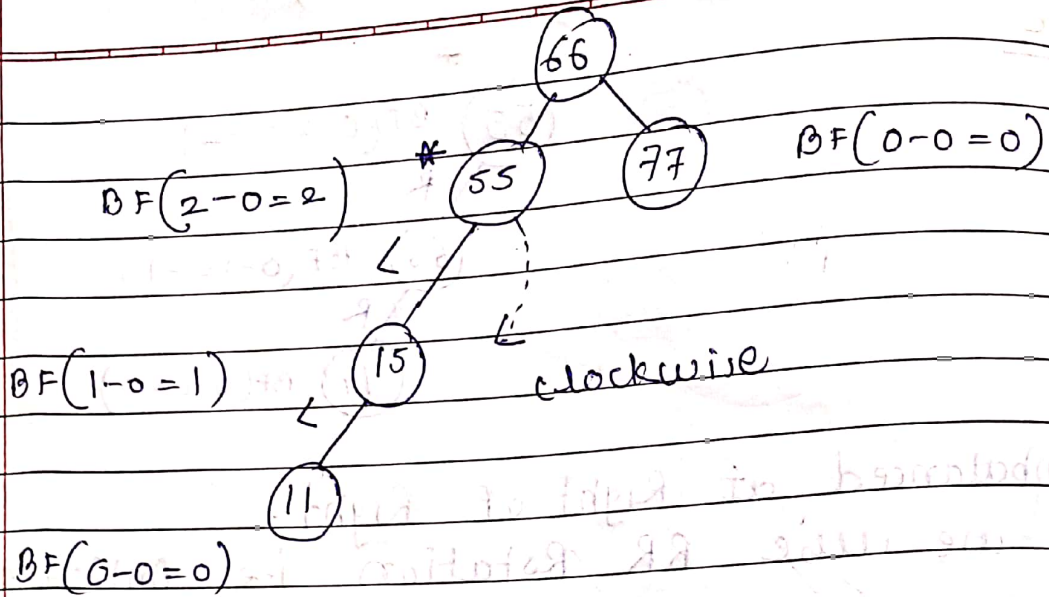 66
BF(0-0=0)
*
55
77
BF(2-0=2)
L
L
BF(1-0=1)
15
clockwise
L
11
BF(0-0=0)